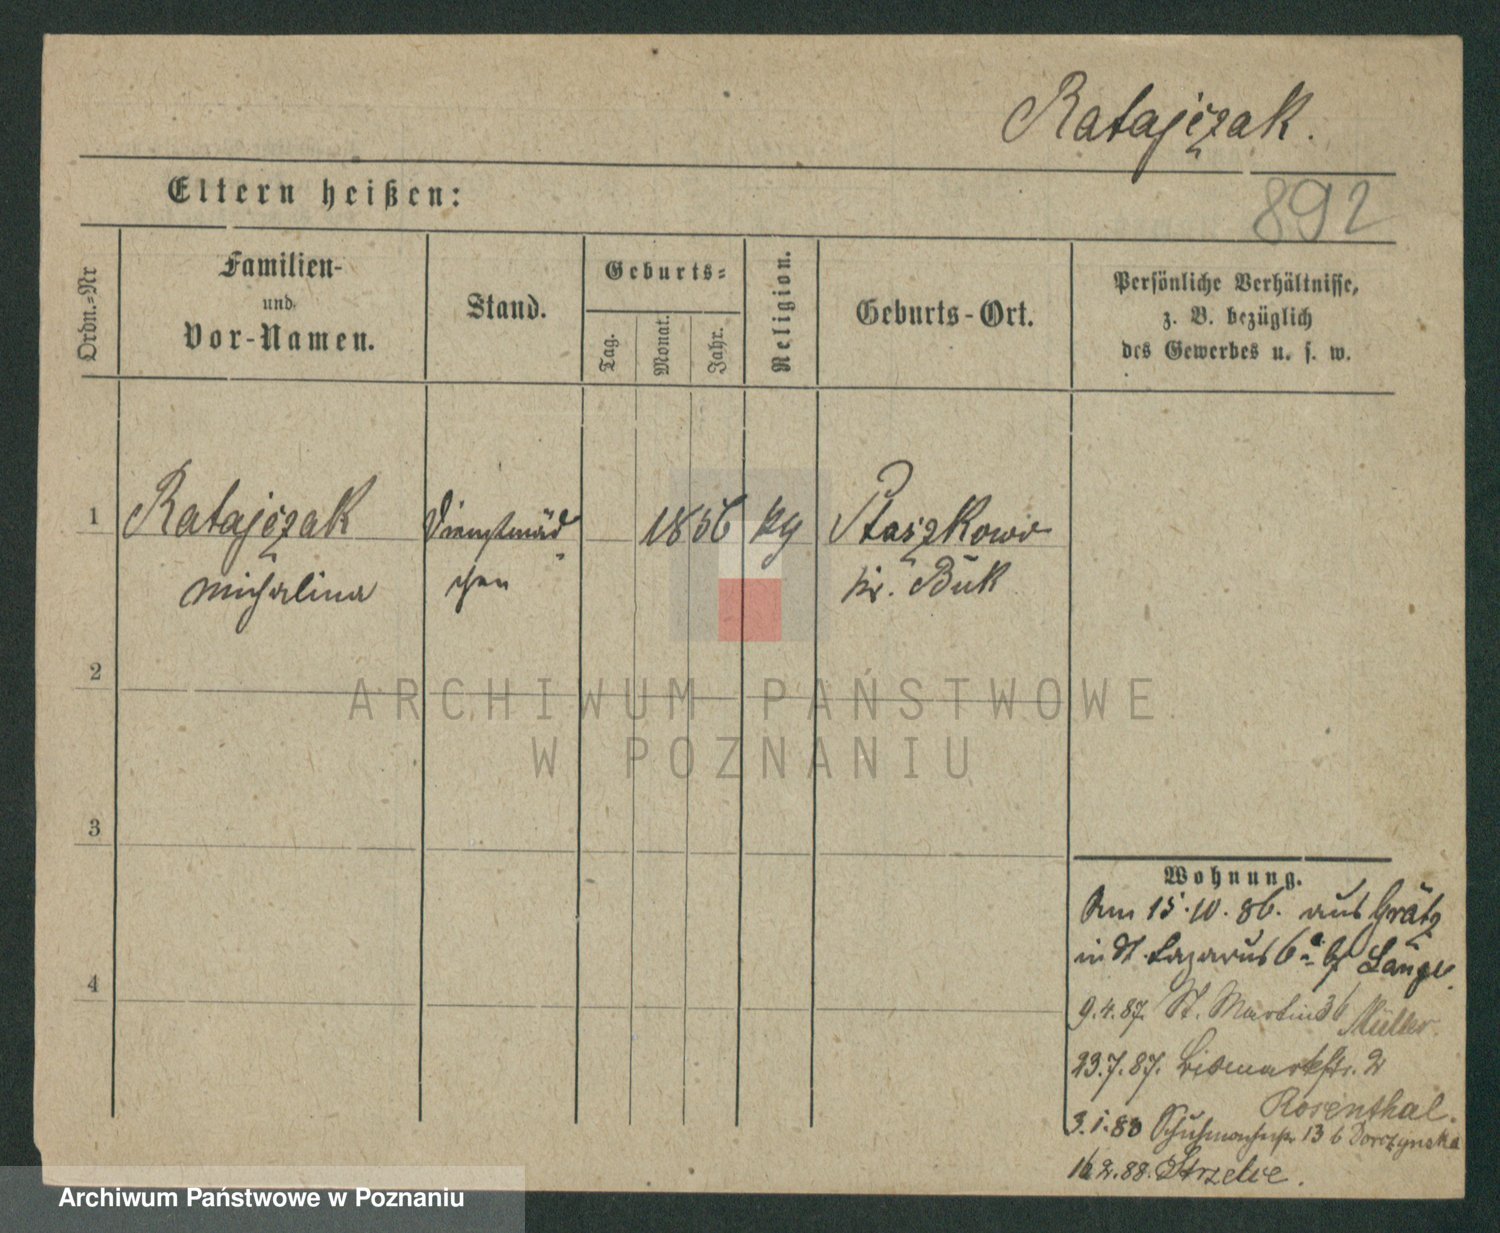 Ratajczak.
892
Eltern heißen:
Ordn.=Nr
Familien-
und
Vor-Namen.
Stand.
Geburts=
Tag.
Monat.
Jahr.
Religion.
Geburts-Ort.
Persönliche Verhältnisse,
z. B. bezüglich
des Gewerbes u. s. w.
1
Ratajczak
Michalina
Dienstmäd
chen
1856
Ptaszkowo
Kr. Buk
2
3
4
ARCHIWUM PAŃSTWOWE
W POZNANIU
Wohnung.
Am 15.10.86. aus Grätz
in St. Lazarus 6a Lange.
9.4.87. St. Martin 36 Müller.
23.7.87. Bismarckstr. 2
Rosenthal.
3.1.88 13 b
16.2.88.
Archiwum Państwowe w Poznaniu